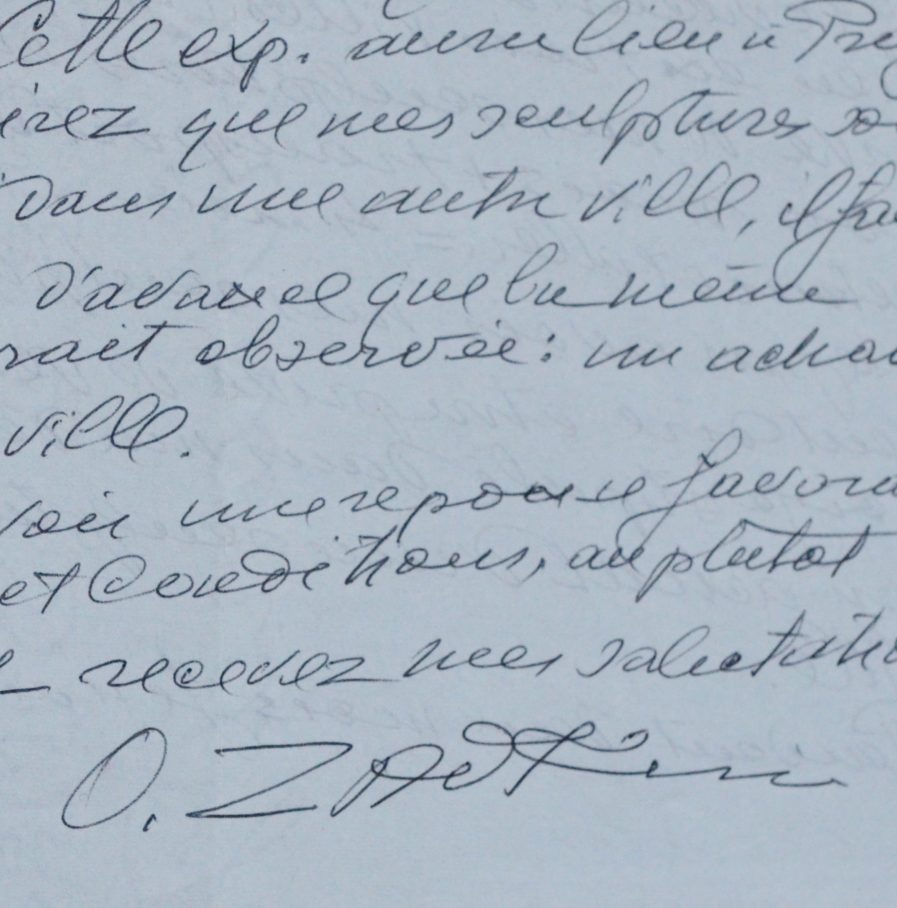 Cette exp. aura lieu à Pra
érez que mes sculptures so
Dans une autre ville, il fa
d'avance que la même
rait observée: un achat
ville.
voir une reponse favora
et Conditions, au plutot
recevez mes salutatio
O. ZAdKin